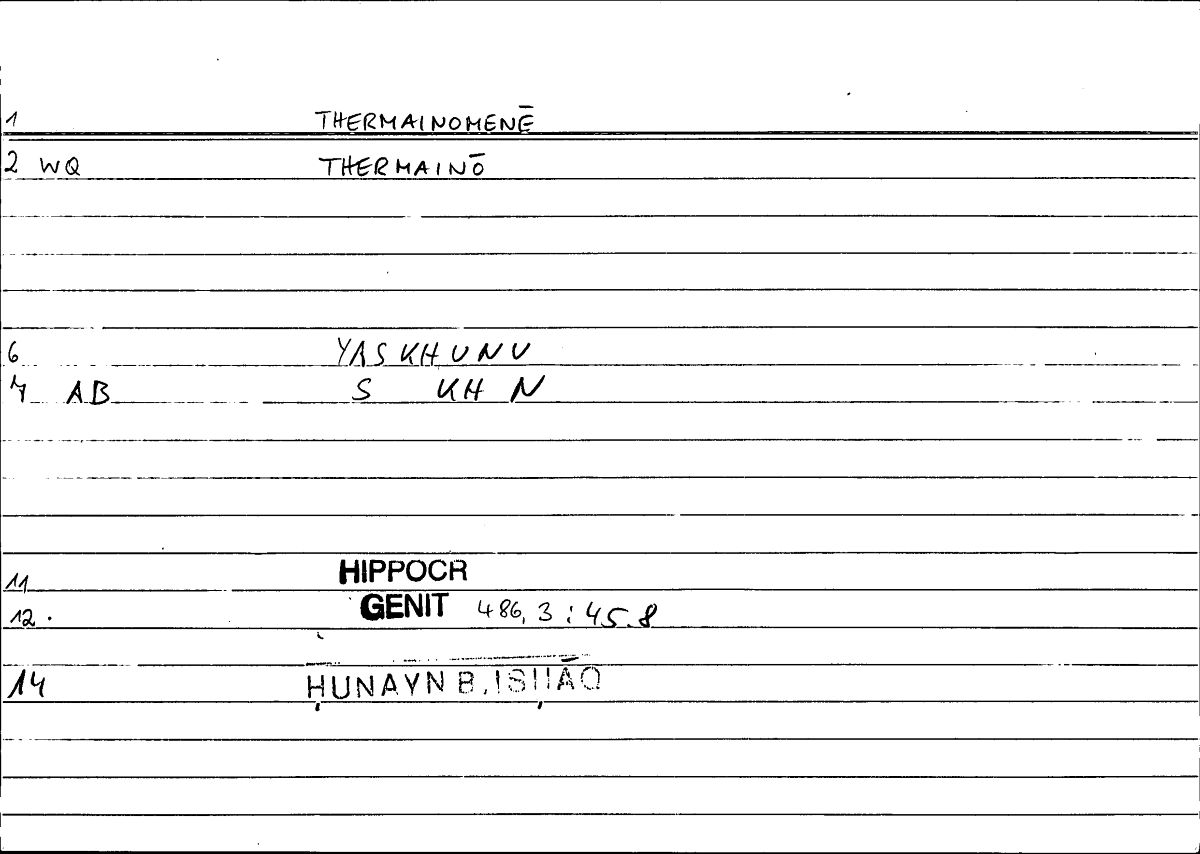 1 THERMAINOMENĒ
2 WQ THERMAINŌ
6 YASKHUNU
7 AB S KH N
11 HIPPOCR
12. GENIT 486,3 : 45.8
14 ḤUNAYN B. ISḤĀQ